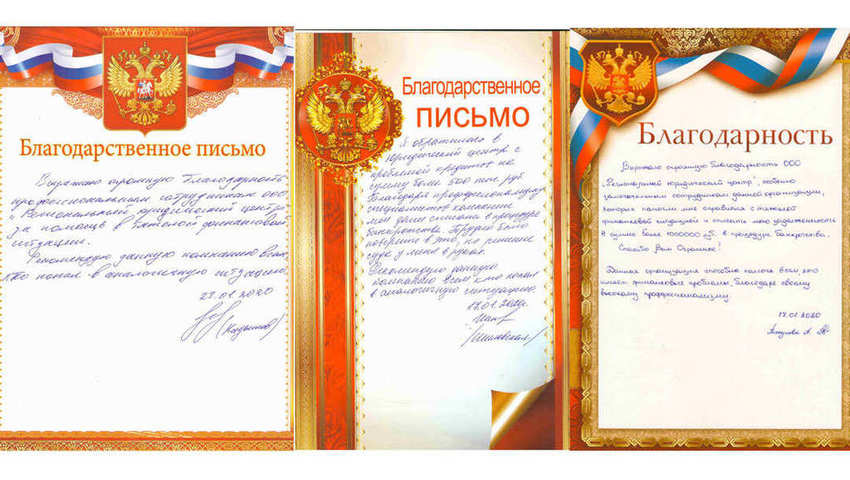 Благодарственное письмо
Выражаю огромную благодарность
профессиональным сотрудникам ООО
"Региональный юридический центр"
за помощь в тяжелой финансовой
ситуации.
Рекомендую данную компанию всем,
кто попал в аналогичную ситуацию
27.01.2020
Благодарственное
ПИСЬМО
Я обратилась в
юридический центр с
проблемой кредитов на
сумму более 500 тыс. руб.
Благодаря профессионализму
специалистов компании
мои долги списали в процедуре
банкротства. Трудно было
поверить в это, но решение
суда у меня в руках.
Рекомендую данную
компанию всем кто попал
в аналогичную ситуацию.
17.01.2020г.
Благодарность
Выражаю огромную благодарность ООО
"Региональный юридический центр",
замечательным сотрудникам данной организации,
которые помогли мне справиться с тяжелой
финансовой ситуацией и списать мою задолженность
в сумме более 1000000 р. в процедуре банкротства.
Спасибо Вам Огромное!
Данная организация способна помочь всем кто
имеет финансовые проблемы, благодаря своему
высокому профессионализму.
17.01.2020